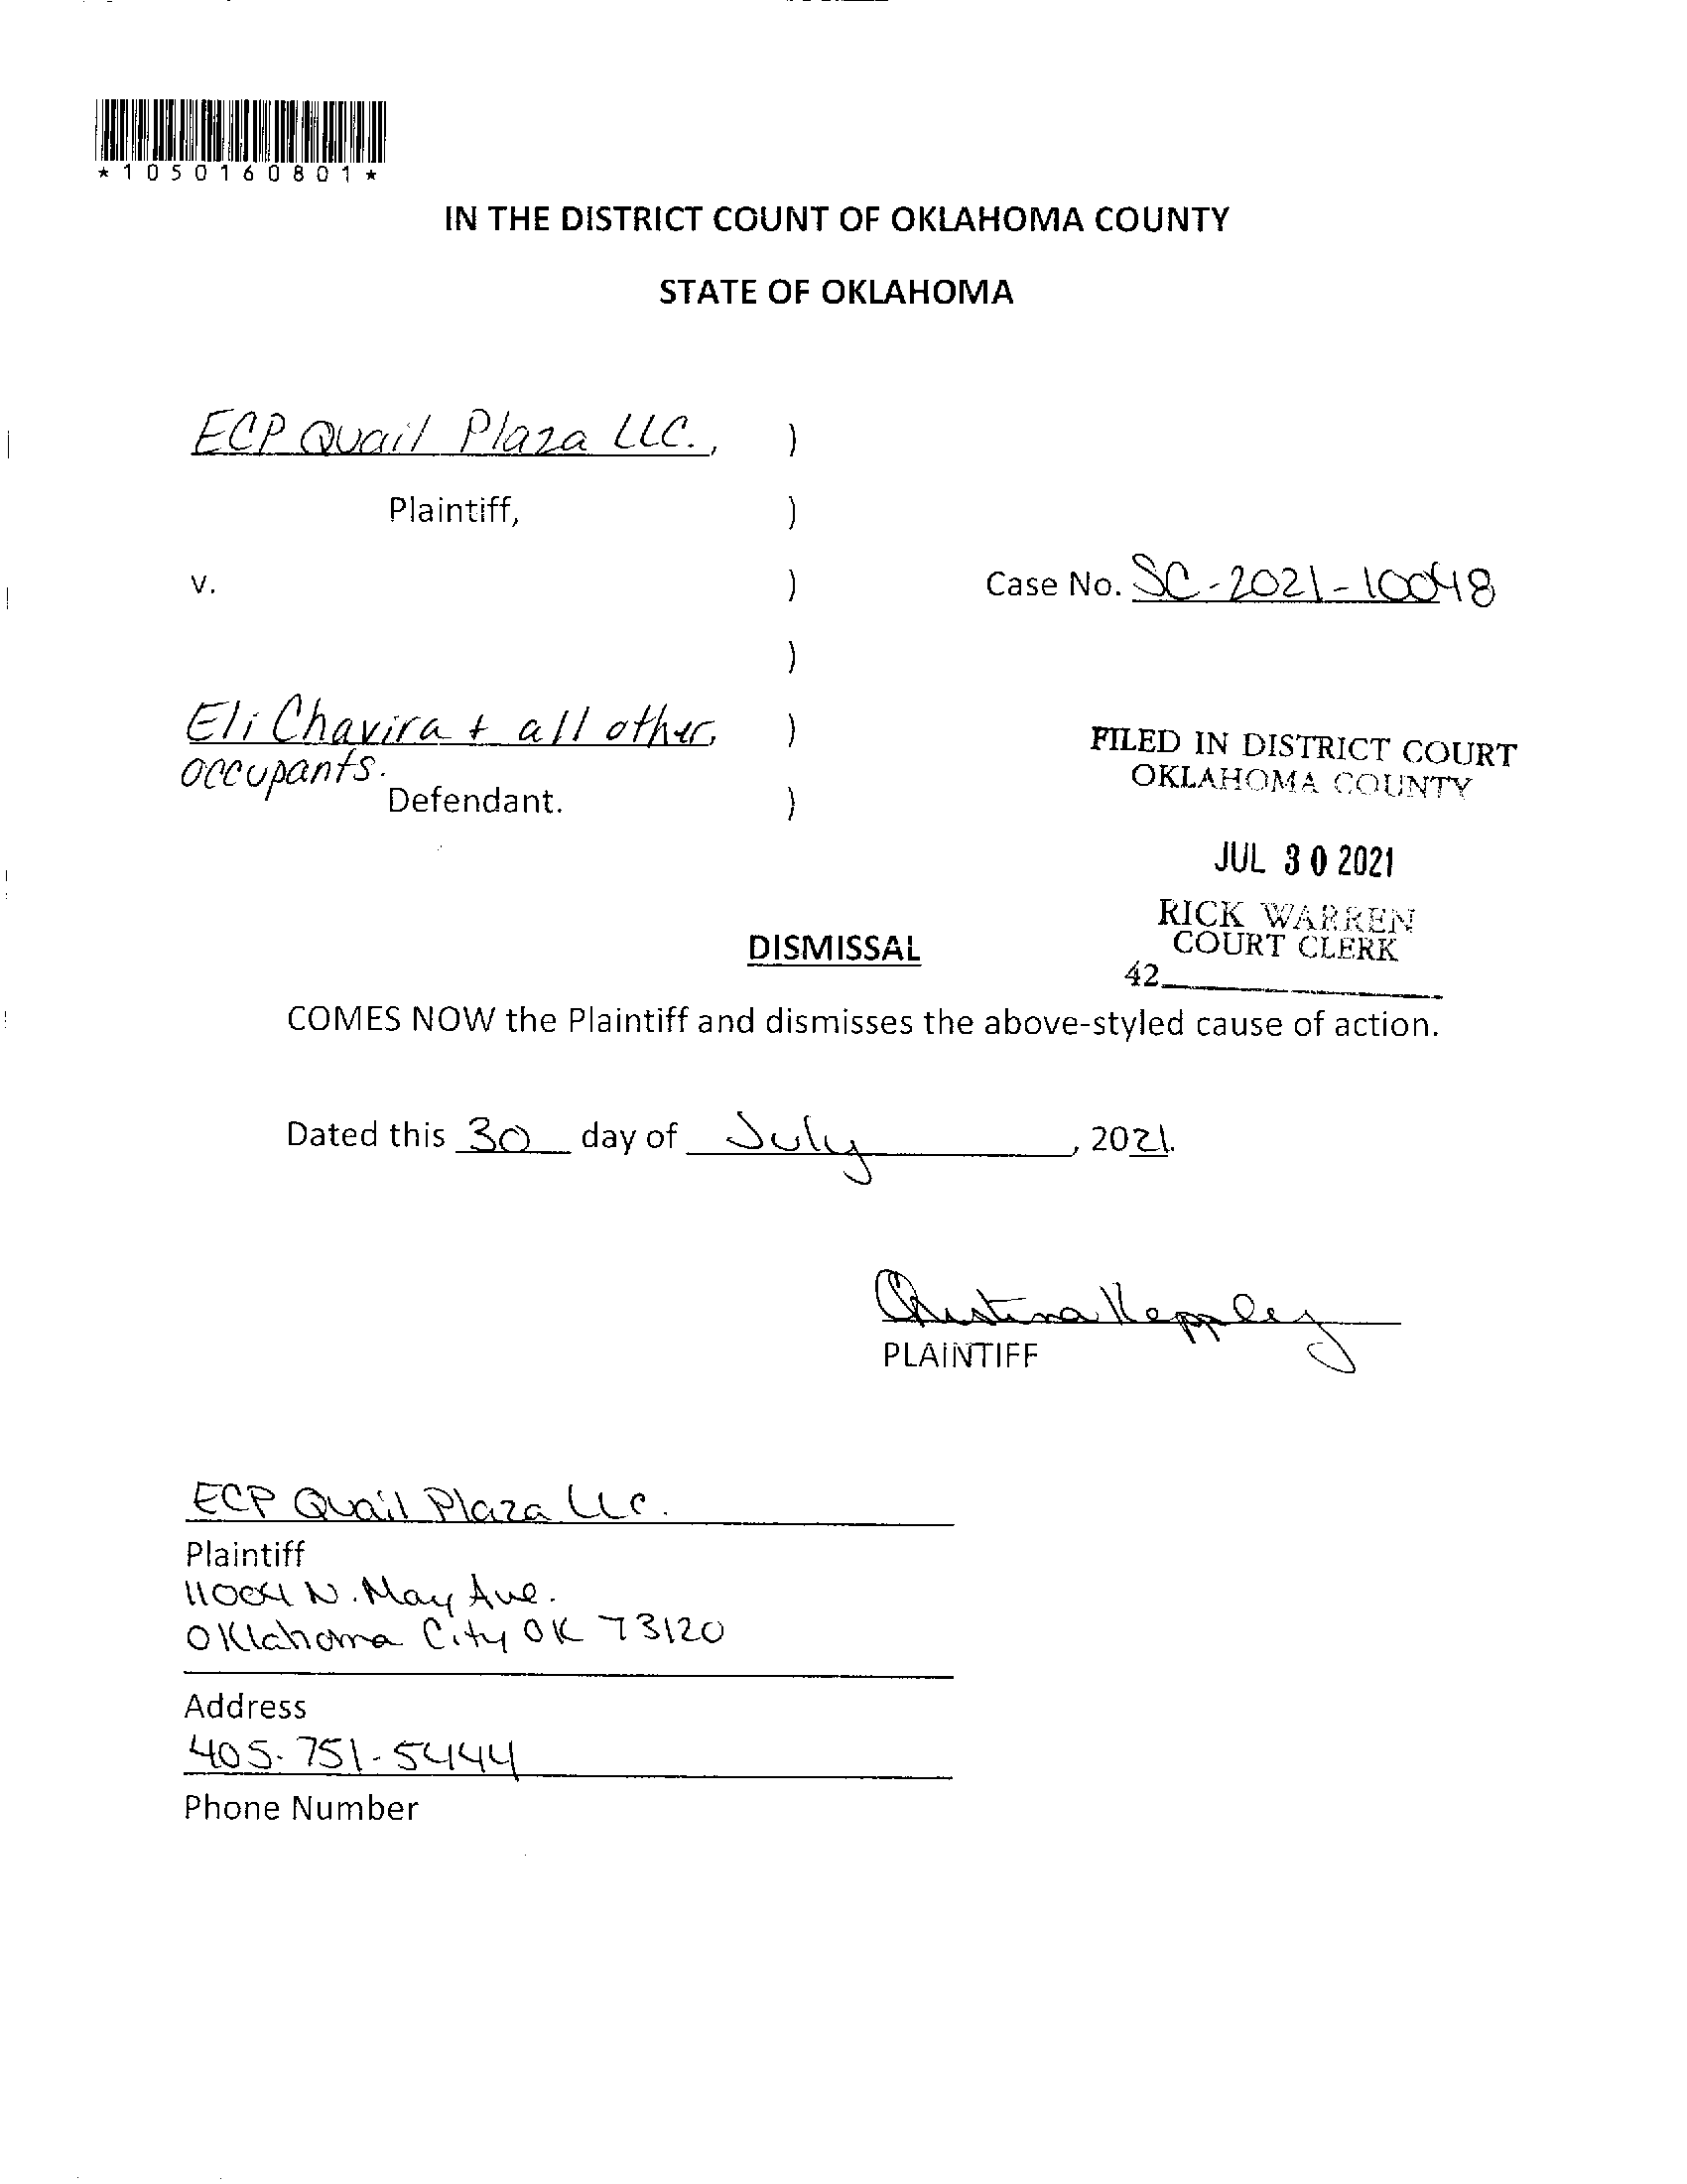 *1050160801*
IN THE DISTRICT COUNT OF OKLAHOMA COUNTY
STATE OF OKLAHOMA
ECP Quail Plaza LLC., )
Plaintiff, )
v. ) Case No. SC-2021-10048
)
Eli Chavira + all other, )
occupants.
Defendant. )
FILED IN DISTRICT COURT
OKLAHOMA COUNTY
JUL 30 2021
RICK WARREN
COURT CLERK
42
DISMISSAL
COMES NOW the Plaintiff and dismisses the above-styled cause of action.
Dated this 30 day of July, 2021.
Christina Keppley
PLAINTIFF
ECP Quail Plaza LLC.
Plaintiff
11004 N. May Ave.
Oklahoma City OK 73120
Address
405-751-5444
Phone Number